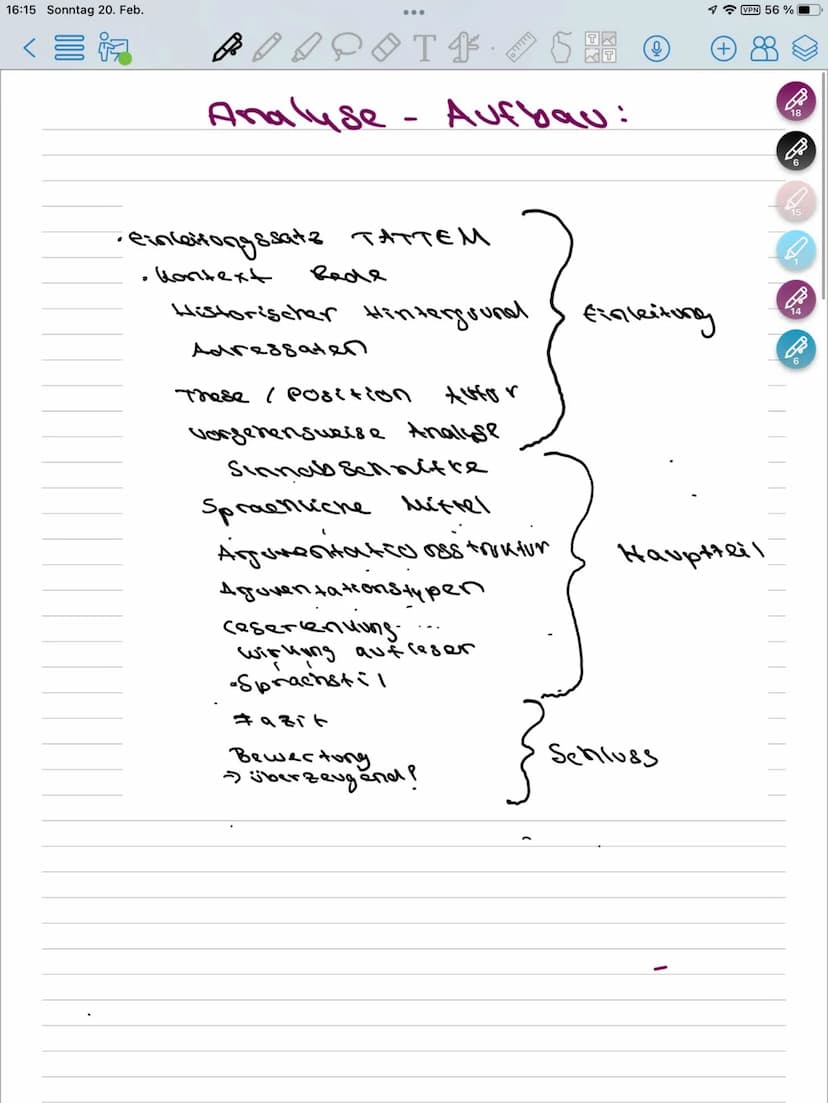 16:15 Sonntag 20. Feb.
VPN 56 %
T
18
6
15
1
14
6
Analyse - Aufbau:
· Einleitungssatz TATTEM
· Kontext Rede
Historischer Hintergrund
Adressaten
These / Position Autor
Vorgehensweise Analyse
Einleitung
Sinnabschnitte
Sprachliche Mittel
Argumentationsstruktur
Aguventationstypen
Leserlenkung ...
Wirkung auf Leser
· Sprachstil
Hauptteil
Fazit
Bewertung
→ überzeugend?
Schluss